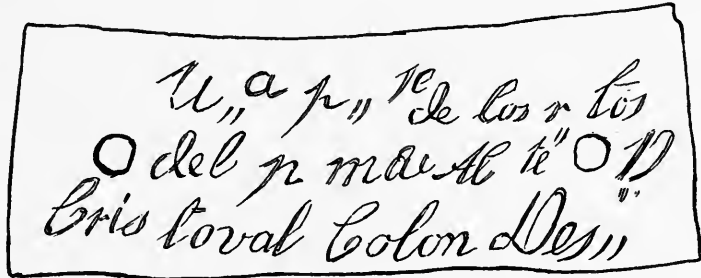 U„ a p„ te de los r tos
del p mer Al te" D
Cris toval Colon Des„